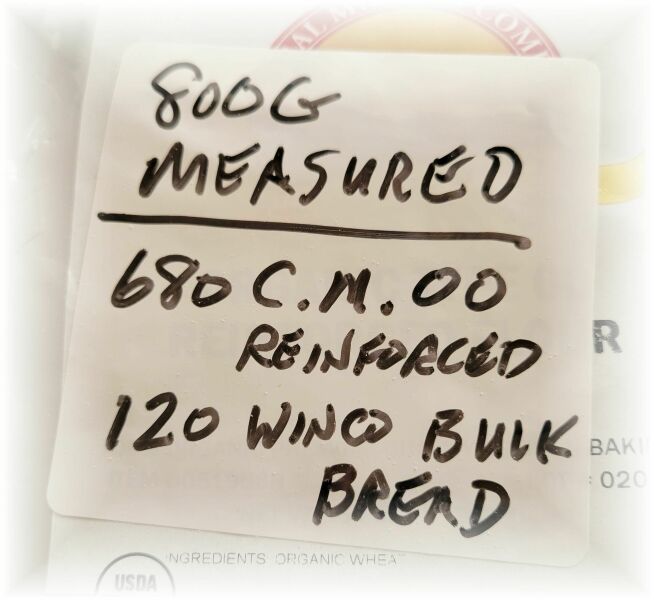 800G
MEASURED
680 C.M. 00
REINFORCED
120 WINCO BULK
BREAD
R
020
INGREDIENTS: ORGANIC WHEAT
USDA